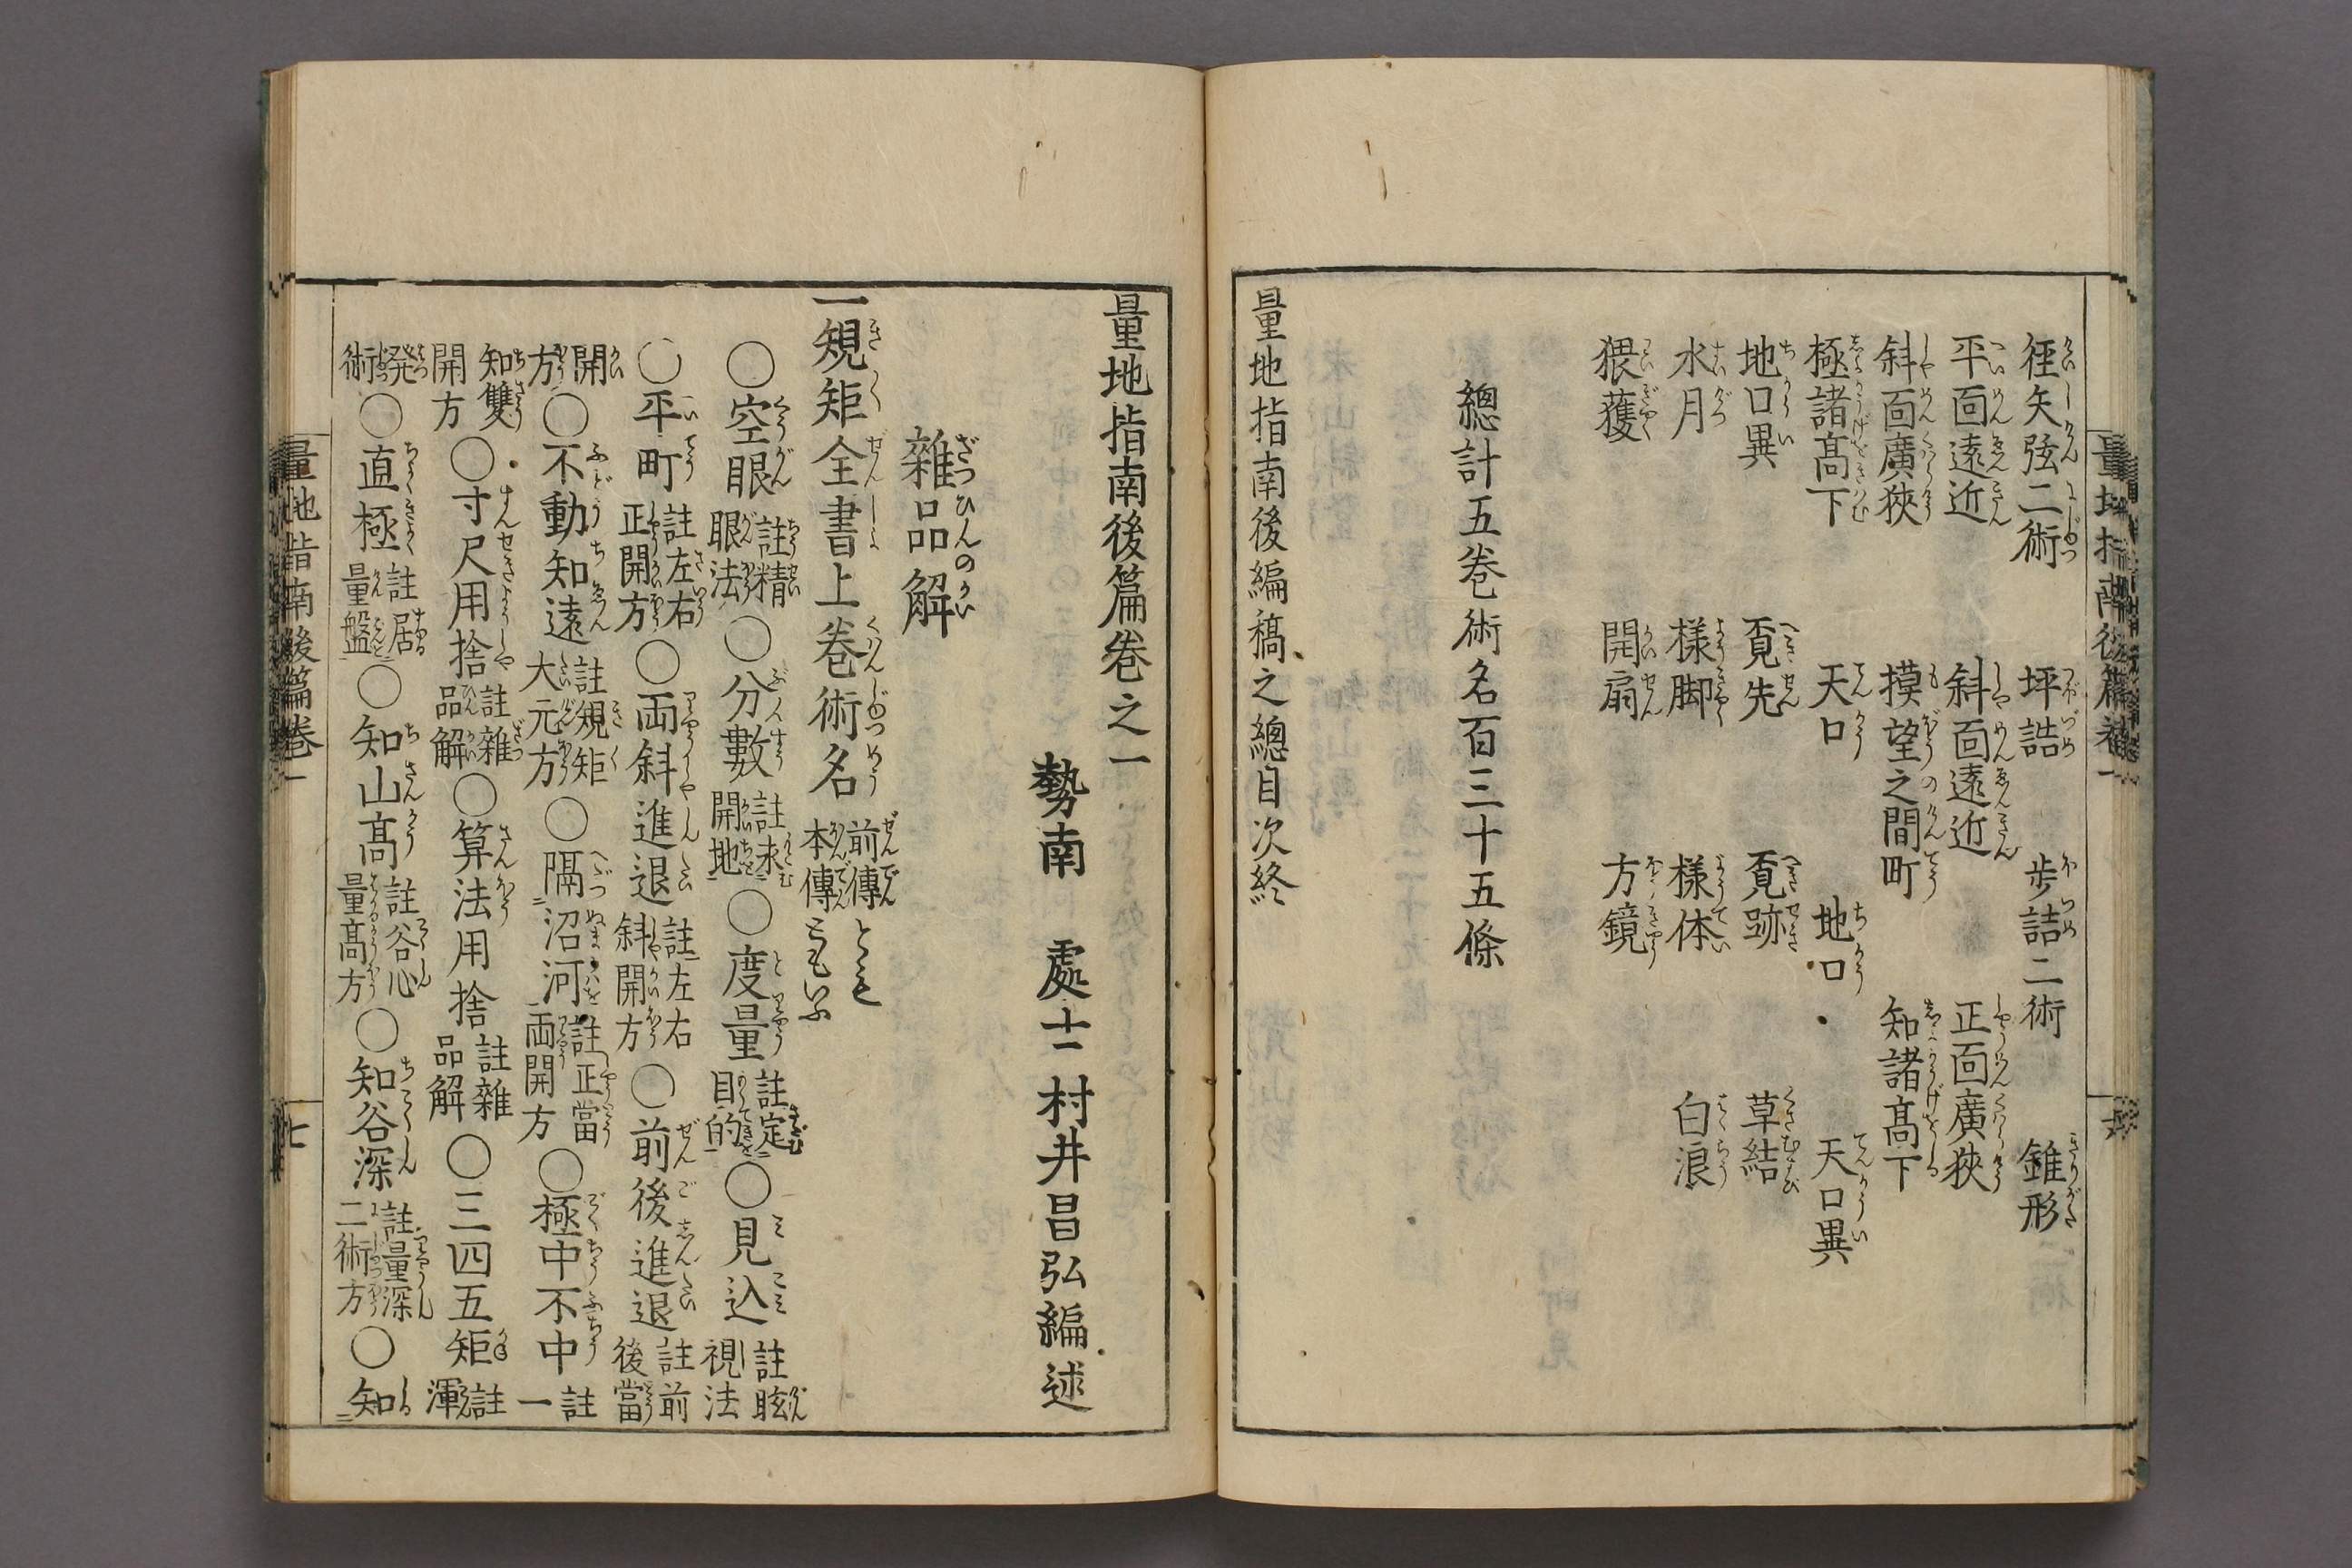 径矢弦二術　坪詰　歩詰二術　錐形
平面遠近　斜面遠近　正面廣狹
斜面廣狹　摸望之間町　知諸髙下
極諸髙下　天口　地口　天口異
地口異　覔先　覔跡　草結
水月　様脚　様体　白浪
猥䕶　開扇　方鏡
總計五卷術名百三十五條
量地指南後編稿之總目次終
量地指南後篇卷之一
勢南　處士　村井昌弘編述
雜品解
一規矩全書上卷術名 前傳とも 本傳ともいふ
〇空眼 註精眼法 〇分數 註求開地 〇度量 註定目的 〇見込 註眩視法
〇平町 註左右正開方 〇両斜進退 註左右斜開方 〇前後進退 註前後當
開方 〇不動知遠 註規矩大元方 〇隔沼河 註正當両開方 〇極中不中 註一
知雙開方 〇寸尺用捨 註雜品解 〇算法用捨 註雜品解 〇三四五矩 註渾
発術 〇直極 註居量盤 〇知山髙 註谷心量髙方 〇知谷深 註量深二術方 〇知
量地指南後篇卷一
七